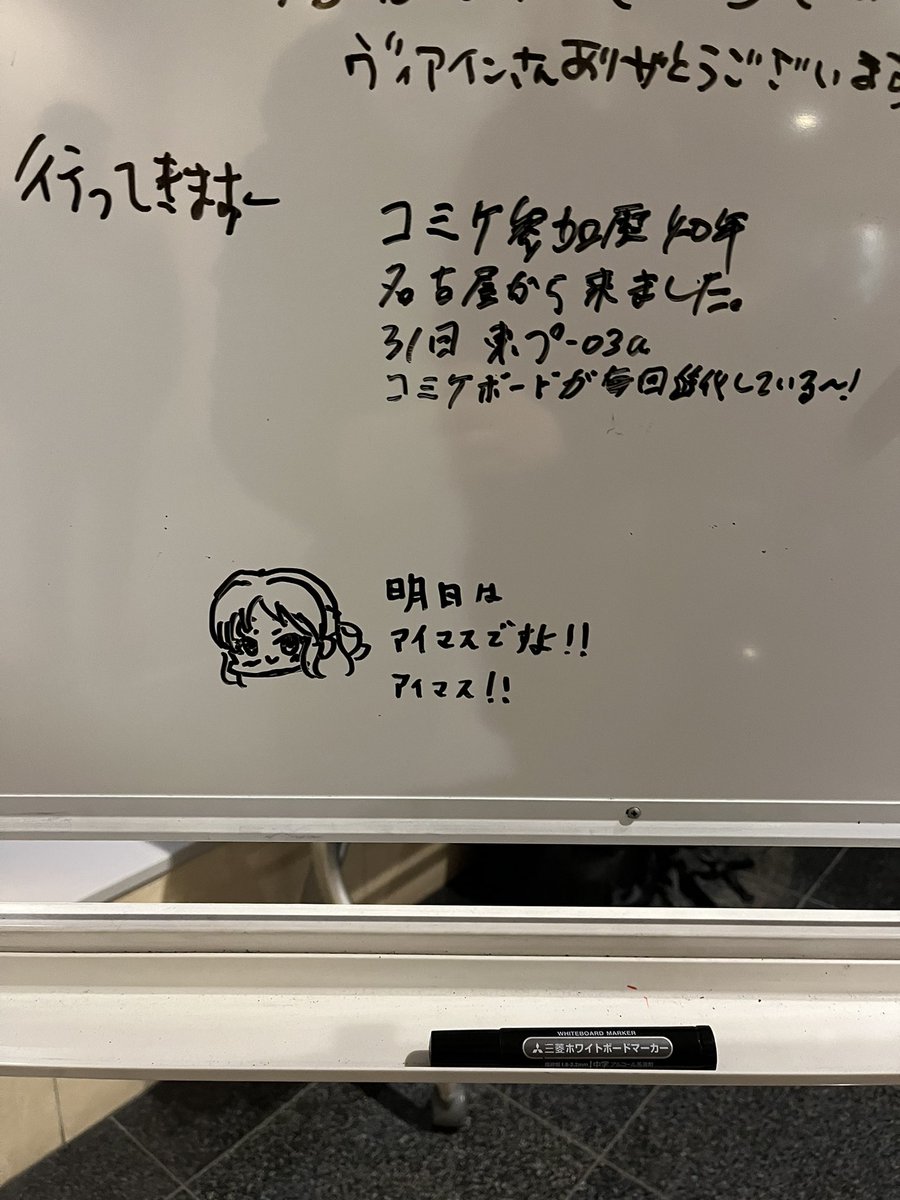 ヴィアインさんありがとうございます
行ってきますー
コミケ参加歴40年
名古屋から来ました。
31日 東プ-03a
コミケボードが毎回進化している〜!
明日は
アイマスですよ!!
アイマス!!
WHITEBOARD MARKER
三菱ホワイトボードマーカー
中字 アルコール系溶剤